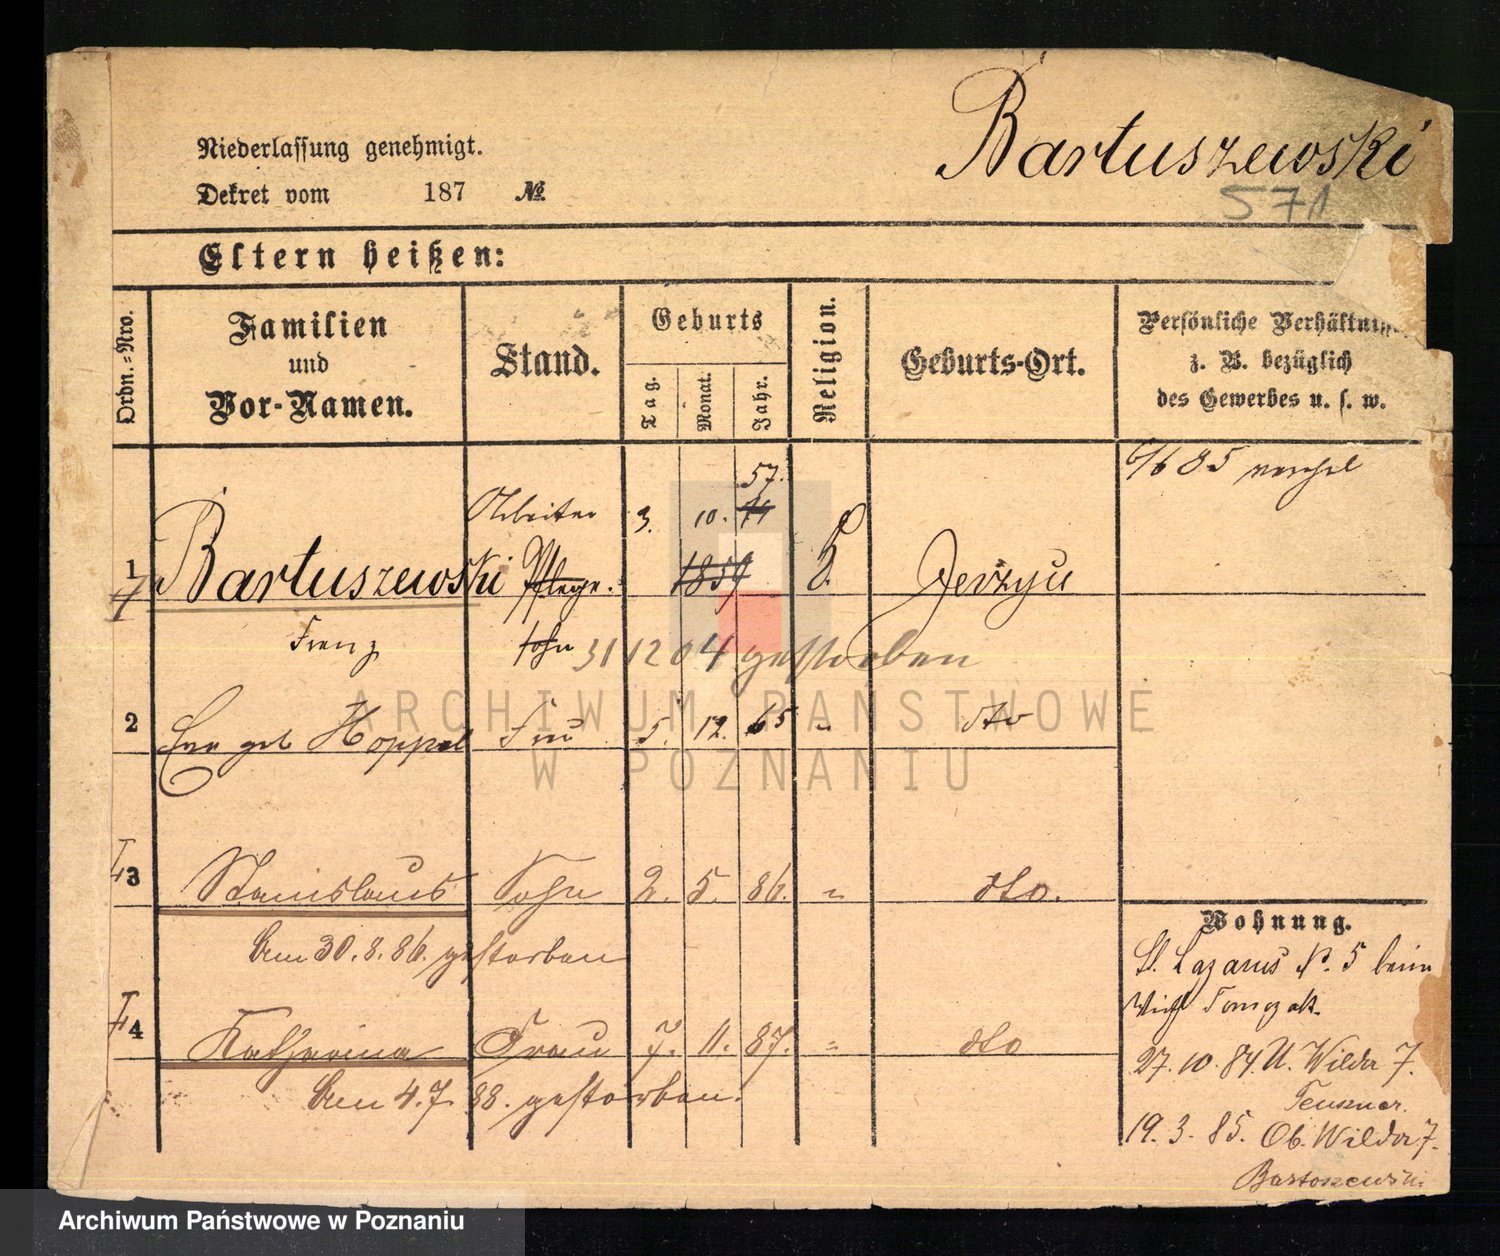 Bartuszewski
Niederlassung genehmigt.
Dekret vom 187 №
571
Eltern heißen:
Ordn.-Nro.
Familien
und
Vor-Namen.
Stand.
Geburts
Tag.
Monat.
Jahr.
Religion.
Geburts-Ort.
Persönliche Verhältni
z. B. bezüglich
des Gewerbes u. s. w.
6/6 85
57.
Arbeiter 3. 10.
1 Bartuszewski Pflege- 1859 k. Jerzyce
Franz sohn
31 12 04 gestorben
2 Eva geb Hoppel Frau 5. 12. 65 " dto
3 Stanislaus Sohn 2. 5. 86. " dto.
Am 30.8.86. gestorben
4 Katharina Frau 7. 11. 87. " dto
Am 4.7. 88. gestorben.
Wohnung.
St. Lazarus №. 5 beim
Wirth Tomczak.
27. 10. 84. U. Wilda 7.
19. 3. 85. Ob. Wilda 7.
Bartoszewski
ARCHIWUM PAŃSTWOWE
W POZNANIU
Archiwum Państwowe w Poznaniu